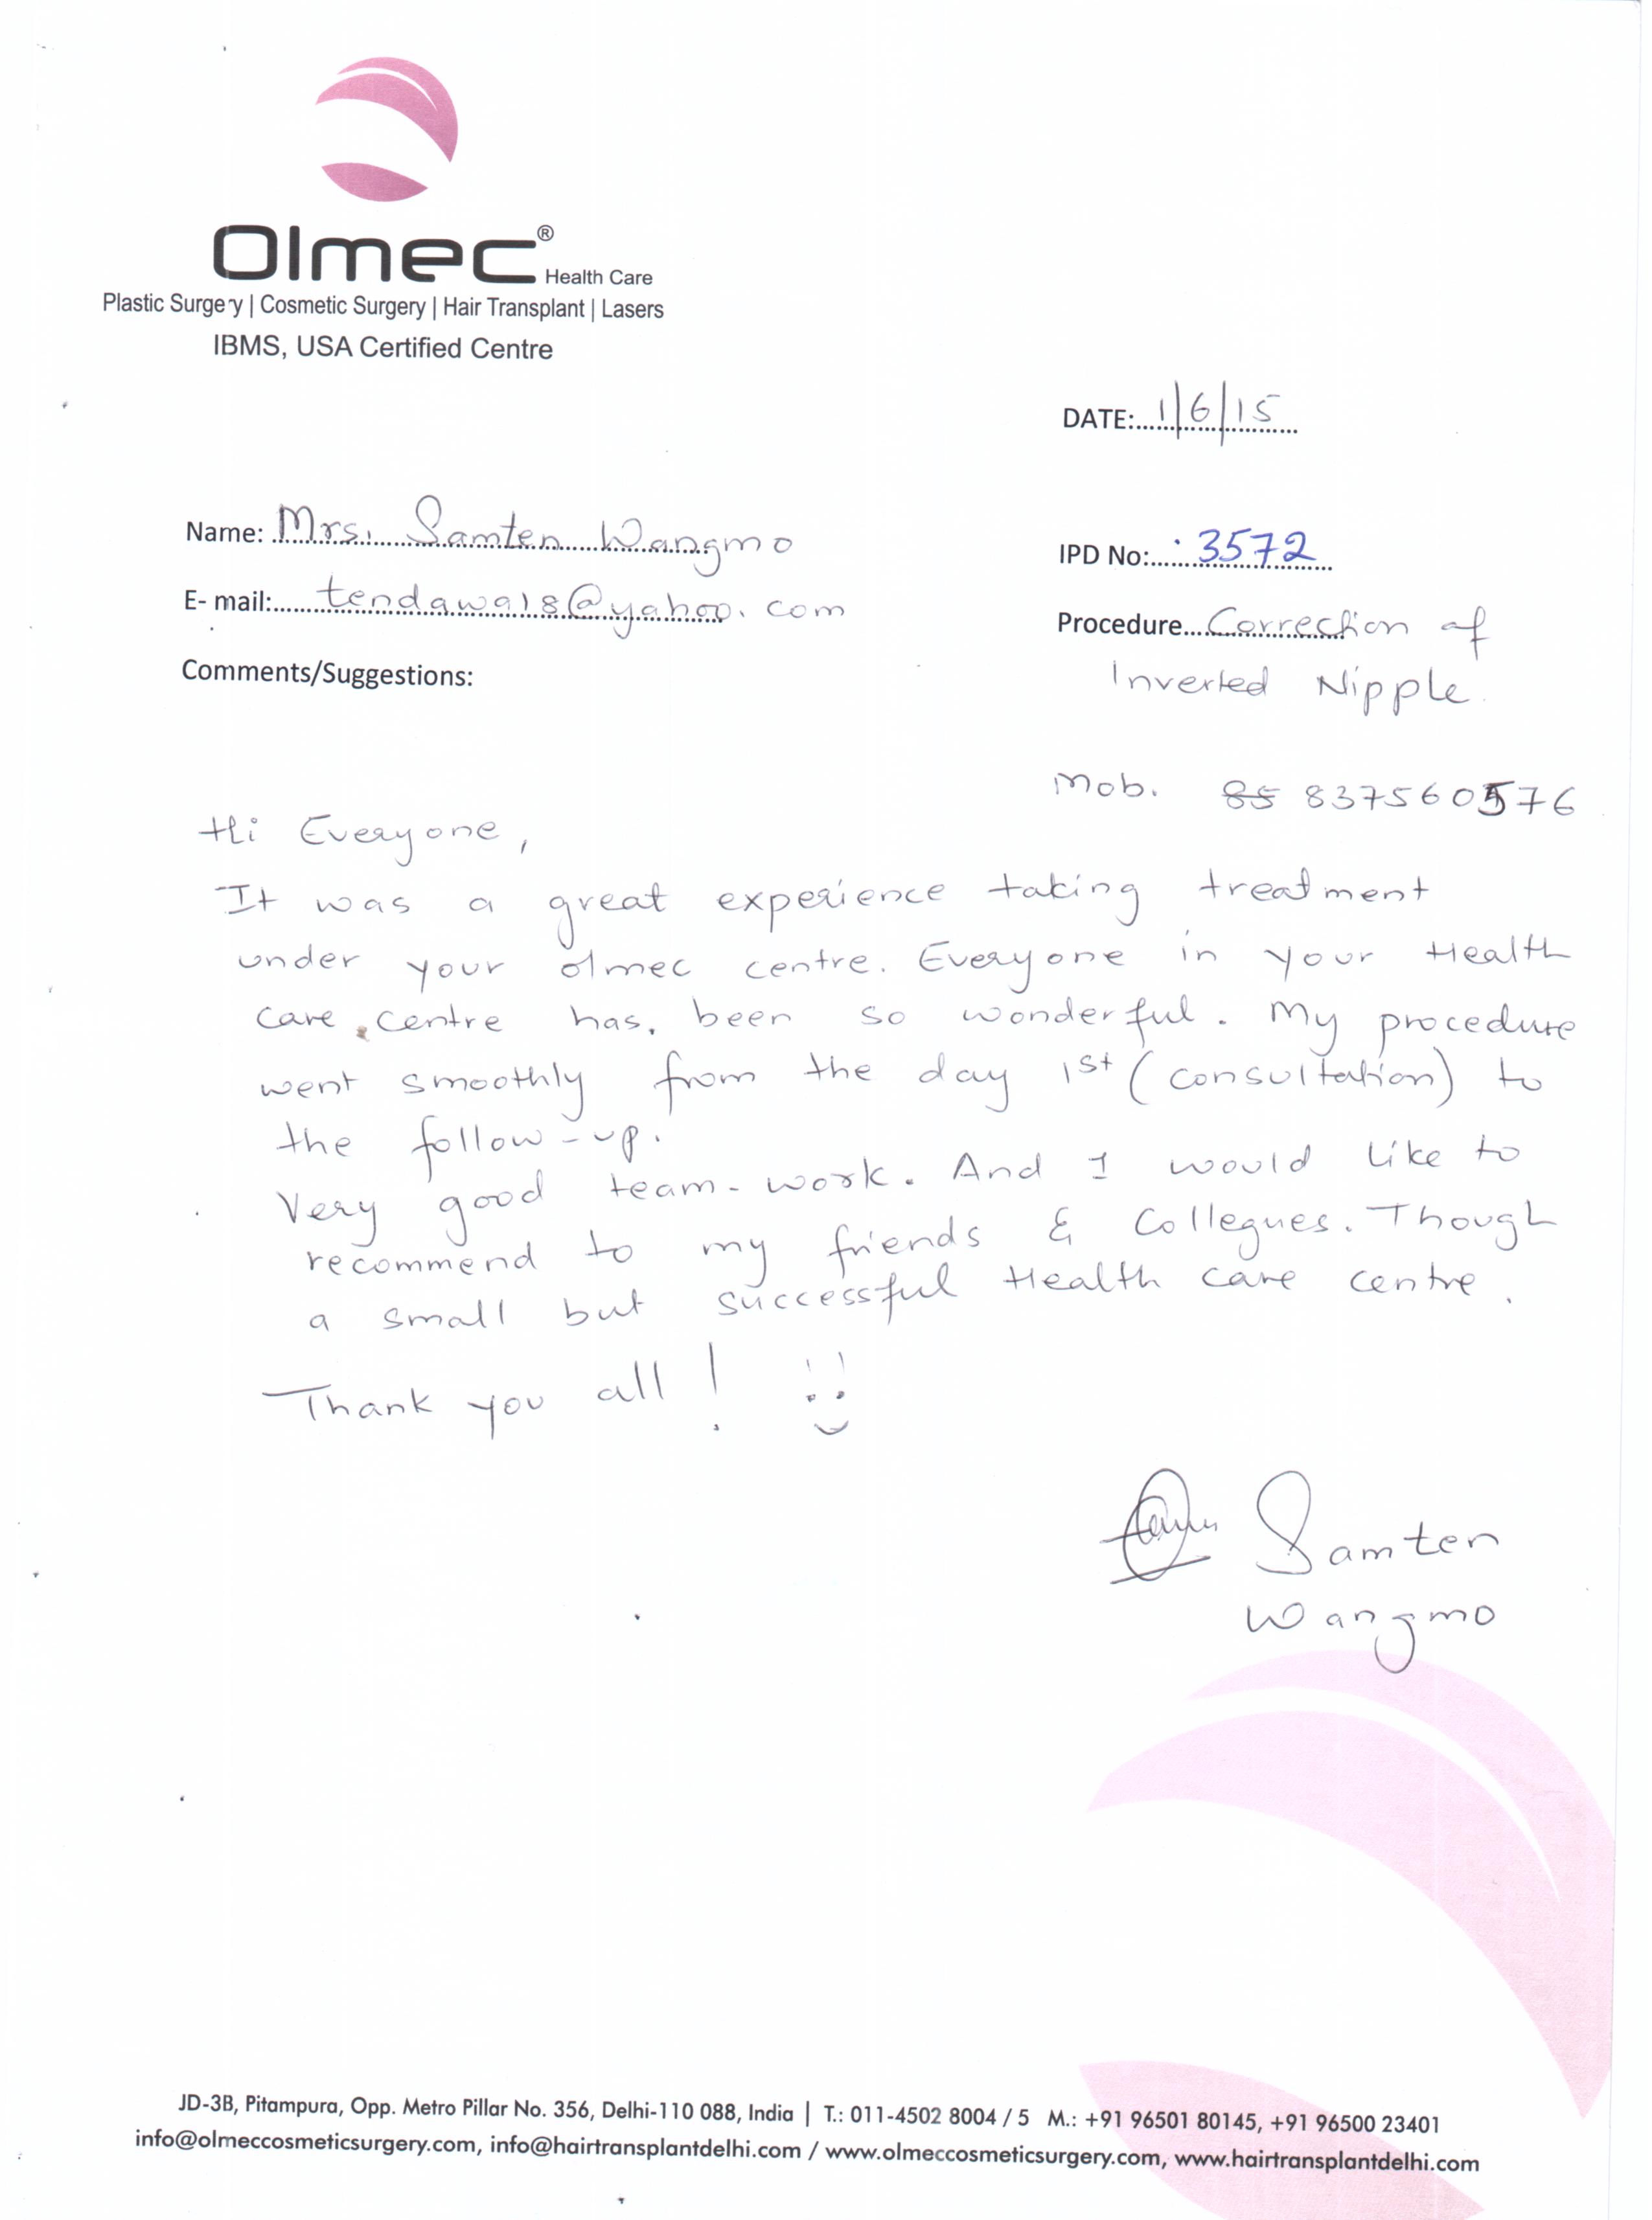 Olmec®
Health Care
Plastic Surgery | Cosmetic Surgery | Hair Transplant | Lasers
IBMS, USA Certified Centre
DATE: 1/6/15
Name: Mrs. Samten Wangmo
IPD No: 3572
E- mail: tendawa18@yahoo.com
Procedure Correction of
Inverted Nipple.
Comments/Suggestions:
Mob. 85 837560576
Hi Everyone,
It was a great experience taking treatment
under your olmec centre. Everyone in your Health
care centre has, been so wonderful. My procedure
went smoothly from the day 1st (consultation) to
the follow-up.
Very good team-work. And I would like to
recommend to my friends & Collegues. Though
a small but successful Health care centre.
Thank you all!
Samten
Wangmo
JD-3B, Pitampura, Opp. Metro Pillar No. 356, Delhi-110 088, India | T.: 011-4502 8004 / 5 M.: +91 96501 80145, +91 96500 23401
info@olmeccosmeticsurgery.com, info@hairtransplantdelhi.com / www.olmeccosmeticsurgery.com, www.hairtransplantdelhi.com